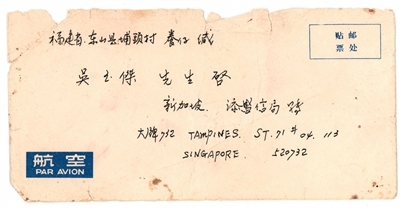 福建省东山县埔头村 养仔 缄
贴邮
票处
吳玉傑 先生 啓
新加坡. 添豐信局
大牌712 TAMPINES. ST. 71 # 04. 113
SINGAPORE. 520732
航空
PAR AVION